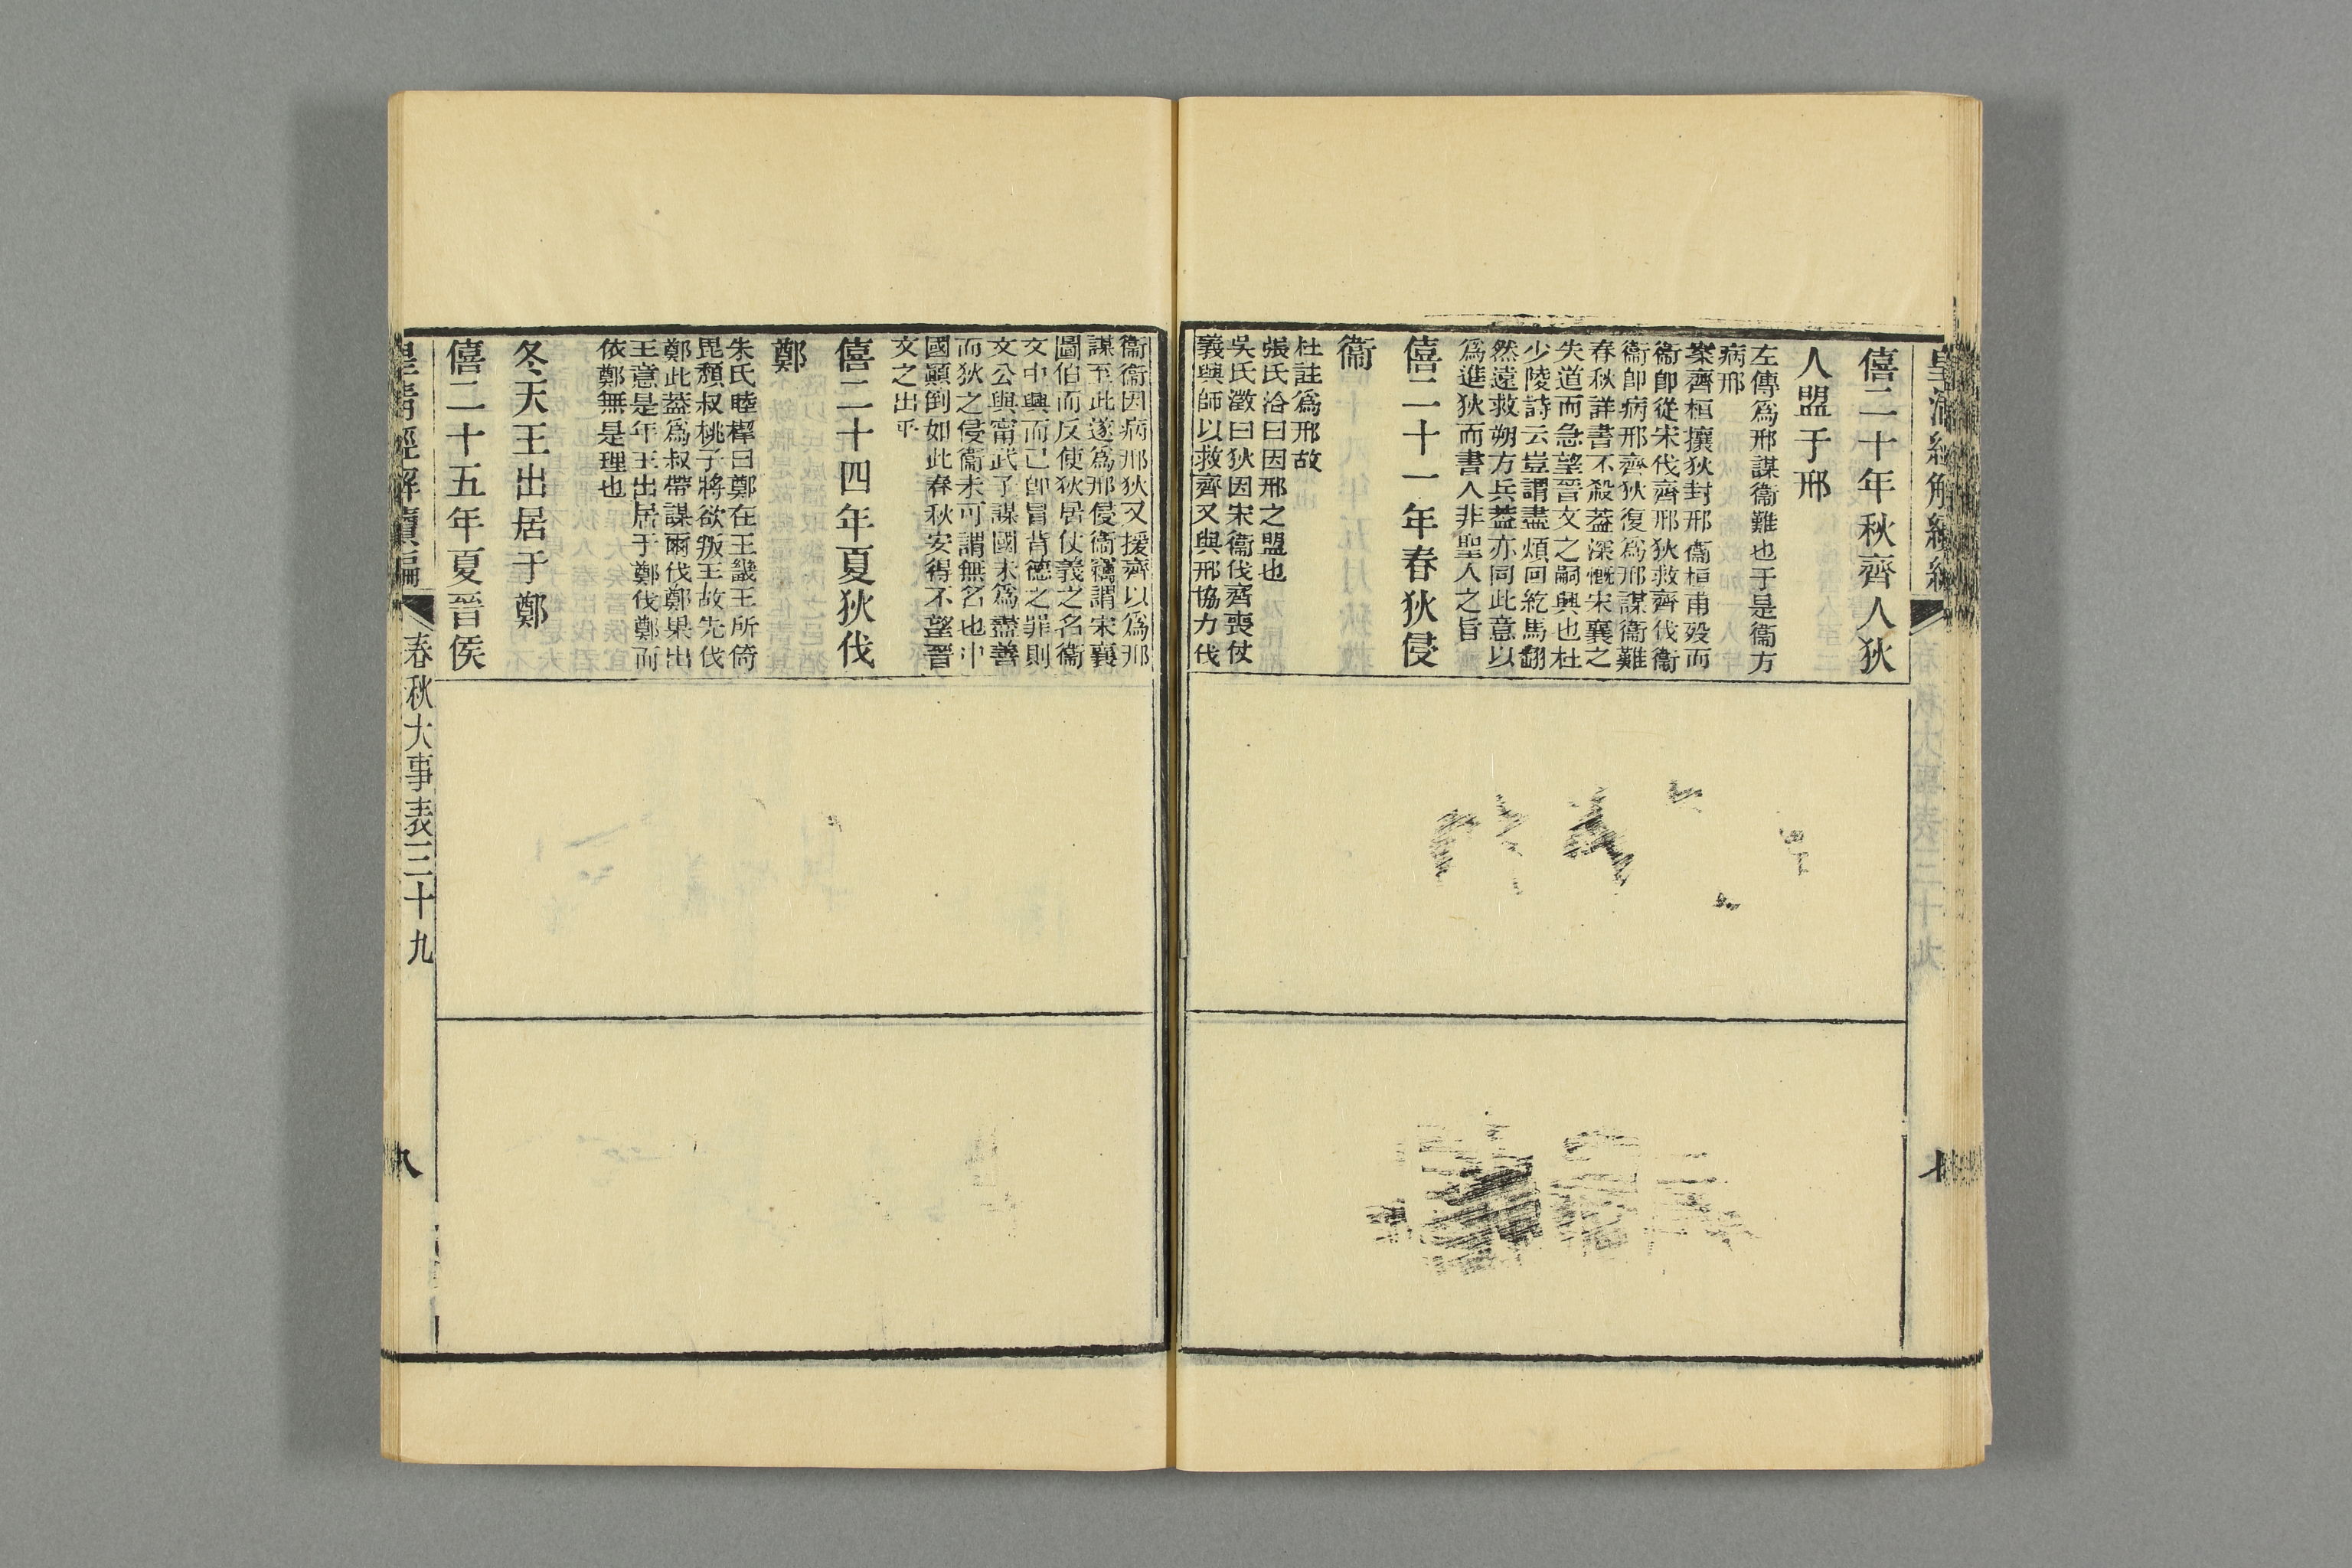 僖二十年秋齊人狄
人盟于邢
左傳爲邢謀衞難也于是衞方
病邢
案齊桓攘狄封邢衞桓甫歿而
衞卽從宋伐齊邢狄救齊伐衞
衞卽病邢齊狄復爲邢謀衞難
春秋詳書不殺蓋深慨宋襄之
失道而急望晉文之嗣興也杜
少陵詩云豈謂盡煩回紇馬翻
然遠救朔方兵蓋亦同此意以
爲進狄而書人非聖人之旨
僖二十一年春狄侵
衞
杜註爲邢故
張氏洽曰因邢之盟也
吳氏澂曰狄因宋衞伐齊喪仗
義興師以救齊又與邢協力伐
衞衞因病邢狄又援齊以爲邢
謀至此遂爲邢侵衞竊謂宋襄
圖伯而反使狄居仗義之名衞
文中興而已卽冒背德之罪則
文公與甯武子謀國未爲盡善
而狄之侵衞未可謂無名也中
國顚倒如此春秋安得不望晉
文之出乎
僖二十四年夏狄伐
鄭
朱氏睦㮮曰鄭在王畿王所倚
毘頹叔桃子將欲叛王故先伐
鄭此蓋爲叔帶謀爾伐鄭果出
王意是年王出居于鄭伐鄭而
依鄭無是理也
冬天王出居于鄭
僖二十五年夏晉侯
皇淸經解續編
春秋大事表三十九
八